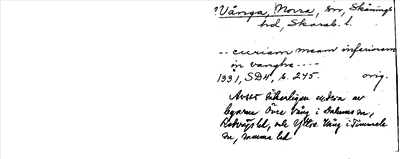 ?Vånga, Norra, sn, Skånings
hd, Skarab. l.
-- curiam meam inferiorem
in vangho ----
1331, SD4, s. 245. orig.
Avser säkerligen endera av
byarna Övre Vång i Dalums sn,
Redvägs hd, och Yttre Vång i Timmele
sn, samma hd